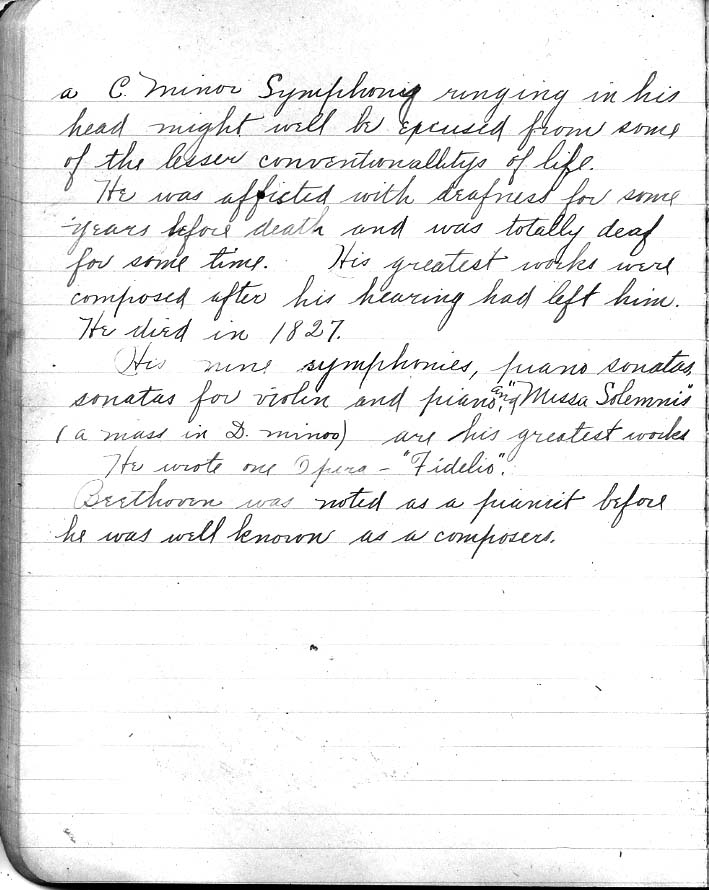 a C. Minor Symphony ringing in his
head might well be excused from some
of the lesser conventionallitys of life.
He was afflicted with deafness for some
years before death and was totally deaf
for some time. His greatest works were
composed after his hearing had left him.
He died in 1827.
His nine symphonies, piano sonatas,
sonatas for violin and piano, and "Missa Solemnis"
(a mass in D. minor) are his greatest works
He wrote one Opera - "Fidelio".
Beethoven was noted as a pianist before
he was well known as a composers.